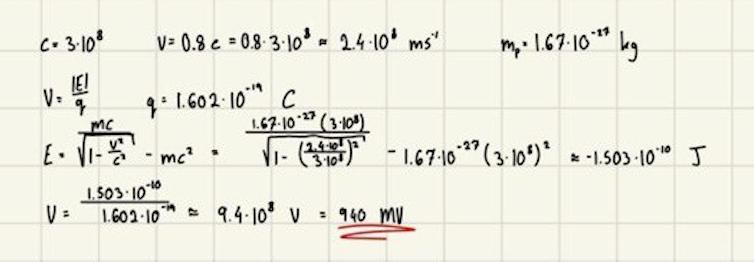 c = 3·10⁸ v = 0.8 c = 0.8·3·10⁸ ≈ 2.4·10⁸ ms⁻¹ mₚ = 1.67·10⁻²⁷ kg
V = |E|/q q = 1.602·10⁻¹⁹ C
E = mc/√(1 - v²/c²) - mc² = 1.67·10⁻²⁷(3·10⁸)/√(1 - (2.4·10⁸/3·10⁸)²) - 1.67·10⁻²⁷(3·10⁸)² ≈ -1.503·10⁻¹⁰ J
V = 1.503·10⁻¹⁰/1.602·10⁻¹⁹ ≈ 9.4·10⁸ V = 940 MV